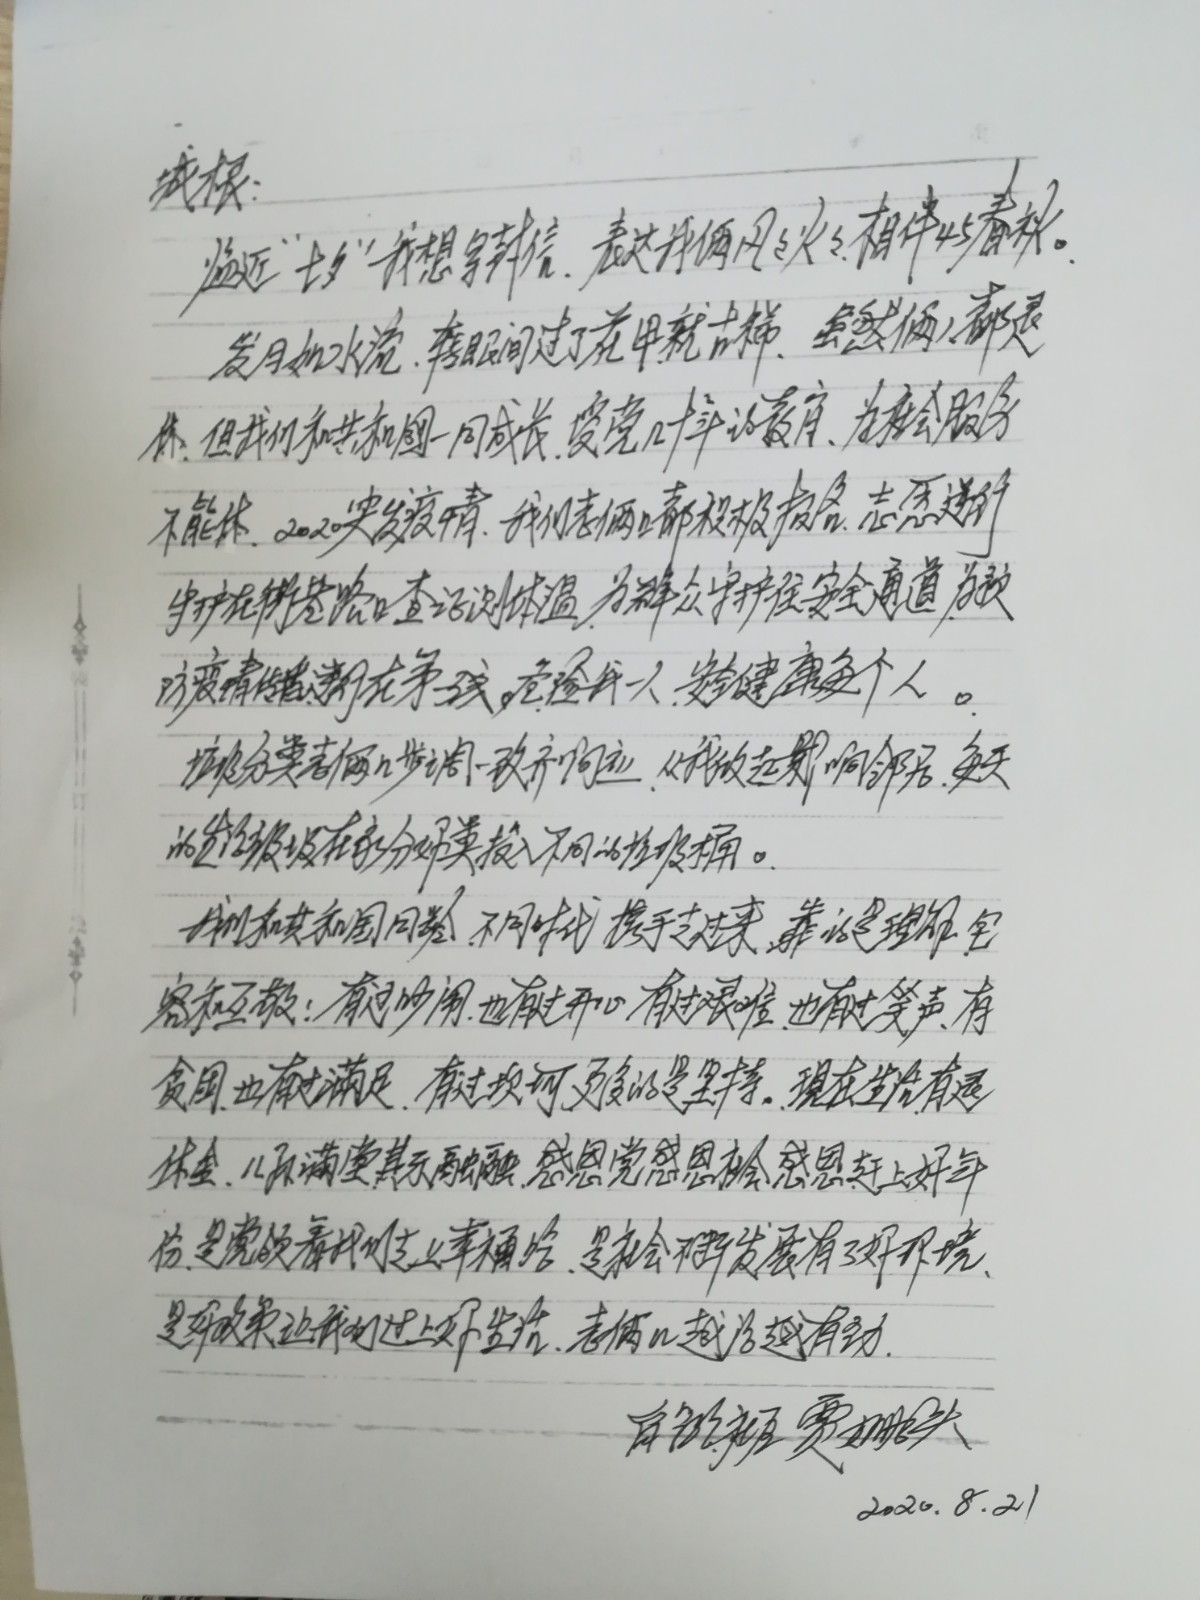 城根:
临近“七夕”我想写封信、表达我俩风风火火、相伴45春秋。
岁月如水流、转眼间过了花甲就古稀、虽然俩人都退
休、但我们和共和國一同成长、受党几十年的教育、为社会服务
不能休、2020突发疫情、我们老俩口都积极报名、志愿逆行
守护在街巷路口查证测体温、为群众守护住安全通道、为
防疫情传播逆行在第一线。危险我一人、安全健康每个人。
垃圾分类老俩口步调一致齐响应、从我做起影响邻居、每天
的生活垃圾在家分好类投入不同的垃圾桶。
我们和共和国同龄、不同时代携手走过来、靠的是理解、包
容和互敬: 有过吵闹、也有过开心、有过艰难、也有过笑声、有
贫困、也有过满足、有过坎坷、更多的是坚持。现在生活有退
休金、儿孙满堂其乐融融、感恩党感恩社会感恩赶上好年
份、是党领着我们走上幸福路、是社会不断发展有了好环境、
是好政策让我们过上好生活、老俩口越活越有劲.
社区 贾
2020.8.21